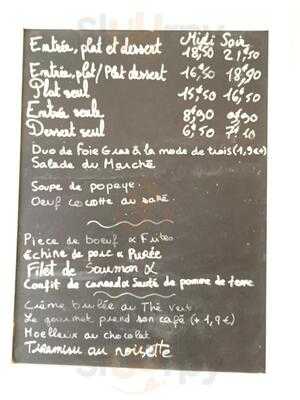 Midi Soir
Entrée, plat et dessert 18,50 21,50
Entrée, plat/Plat dessert 16,50 18,90
Plat seul 15,50 16,50
Entrée seule 8,90 9,90
Dessert seul 6,50
Duo de Foie Gras à la mode de trois (1,9€)
Salade du Marché
Soupe de popeye
Oeuf cocotte au
Piece de boeuf & Frites
Echine de porc & Purée
Filet de Saumon &
Confit de canard & Sauté de pomme de terre
Crème brulée au Thé Vert
Le gourmet prend son café (+ 1,9€)
Moelleux au chocolat
Tiramisu au noisette